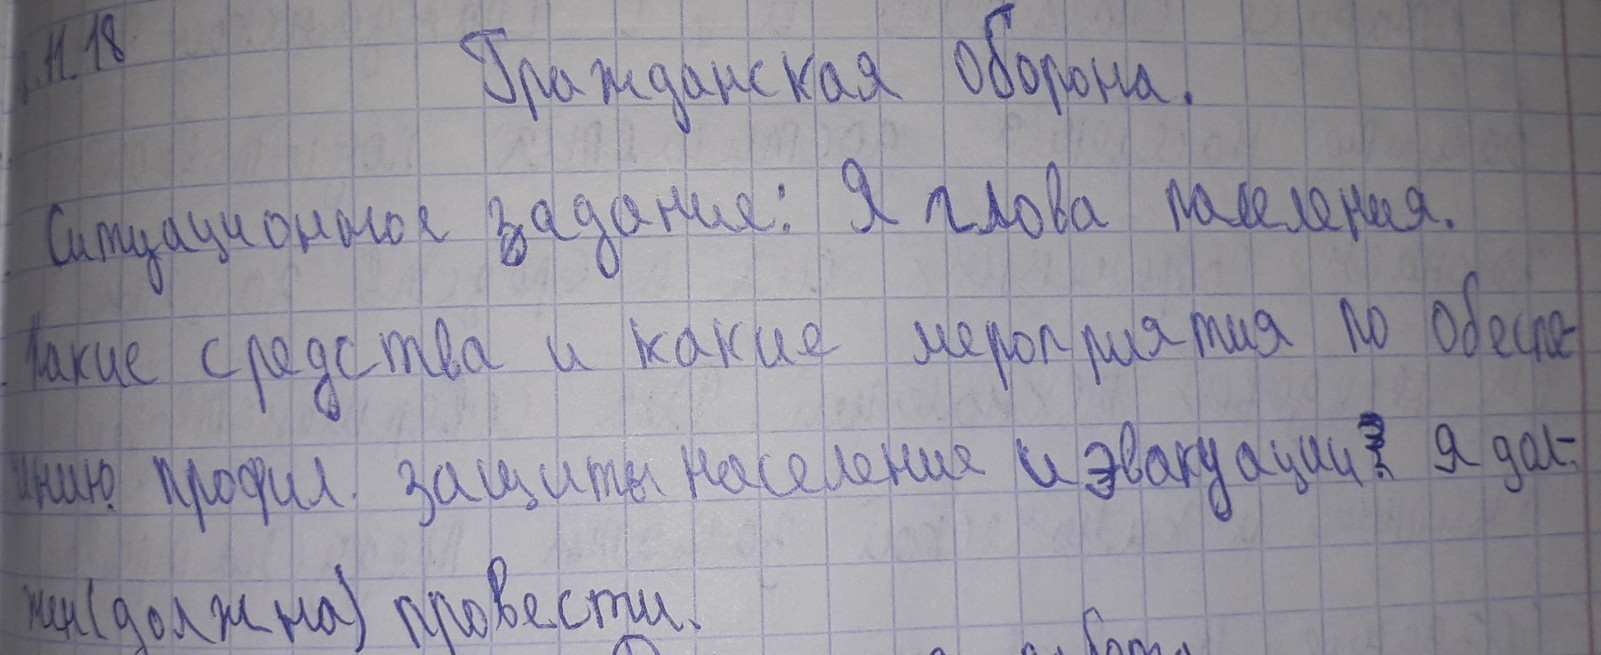 .11.18
Гражданская оборона.
Ситуационное задание: Я глова паселения.
Какие средства и какие мероприятия по обеспе-
чнию профил. защиты население и эвакуации? Я дол-
жен(должна) провести.